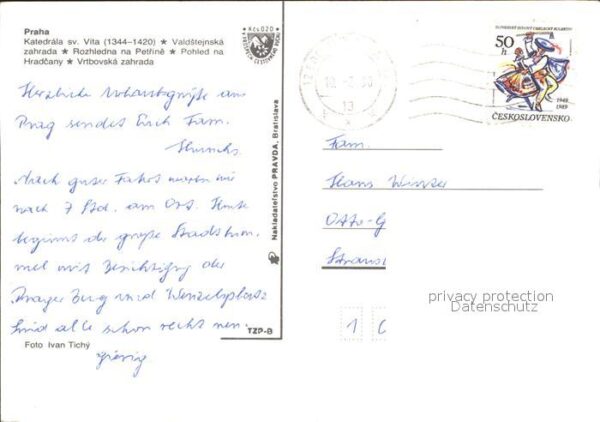 Praha
Katedrála sv. Víta (1344–1420) ★ Valdštejnská
zahrada ★ Rozhledna na Petříně ★ Pohled na
Hradčany ★ Vrtbovská zahrada
Herzliche Urlaubsgrüße aus
Prag sendet Euch Fam.
Nach guter Fahrt waren wir
nach 7 Std. am Ort. Heute
beginnt der große Stadtbum-
mel mit Besichtigung der
Prager Burg und Wenzelsplatz
Sind alle schon recht neu-
gierig
Foto Ivan Tichý
Kčs 0,20
Nakladateľstvo PRAVDA, Bratislava
TZP-B
50 h
1949
1989
ČESKOSLOVENSKO
Fam.
Hans Winter
Otto-G
Straus
privacy protection
Datenschutz
1